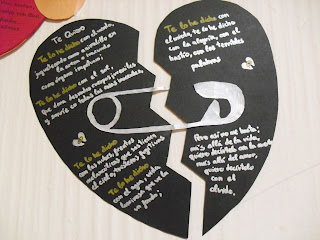 TE QUIERO
Te lo he dicho con el viento,
jugueteando como animalillo en
la arena o iracundo
como órgano impetuoso;
Te lo he dicho con el sol,
que dora desnudos cuerpos juveniles
y sonríe en todas las cosas inocentes.
Te lo he dicho
con las nubes, frentes
melancólicas que sostienen
el cielo, tristezas fugitivas
Te lo he dicho
con el agua, vida
luminosa que vela
Te lo he dicho con
el miedo, te lo he dicho
con la alegría, con el
hastío, con las terribles
palabras
Pero así no me basta;
más allá de la vida,
quiero decírtelo con la muerte
más allá del amor,
quiero decírtelo
con el
olvido.